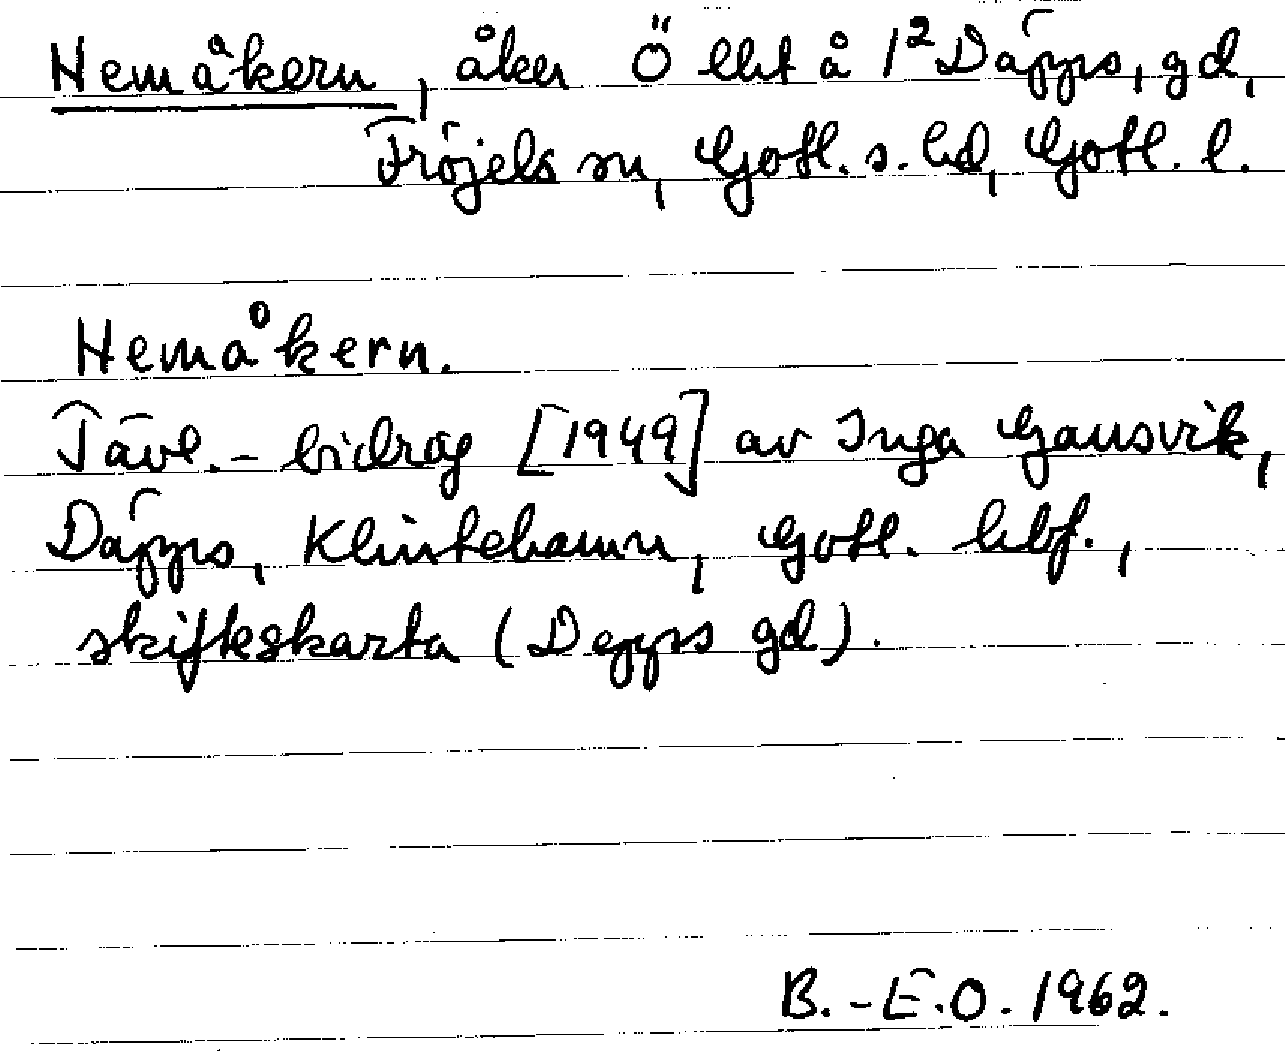 Hemåkern, åker Ö ellt å 1² Däpps, gd,
Fröjels sn, Gotl. s. hd, Gotl. l.
Hemåkern.
Tävl.-bidrag [1949] av Inga Gansvik,
Däpps, Klintehamn, Gotl. hbf.,
skifteskarta (Depps gd).
B.-E.O. 1962.